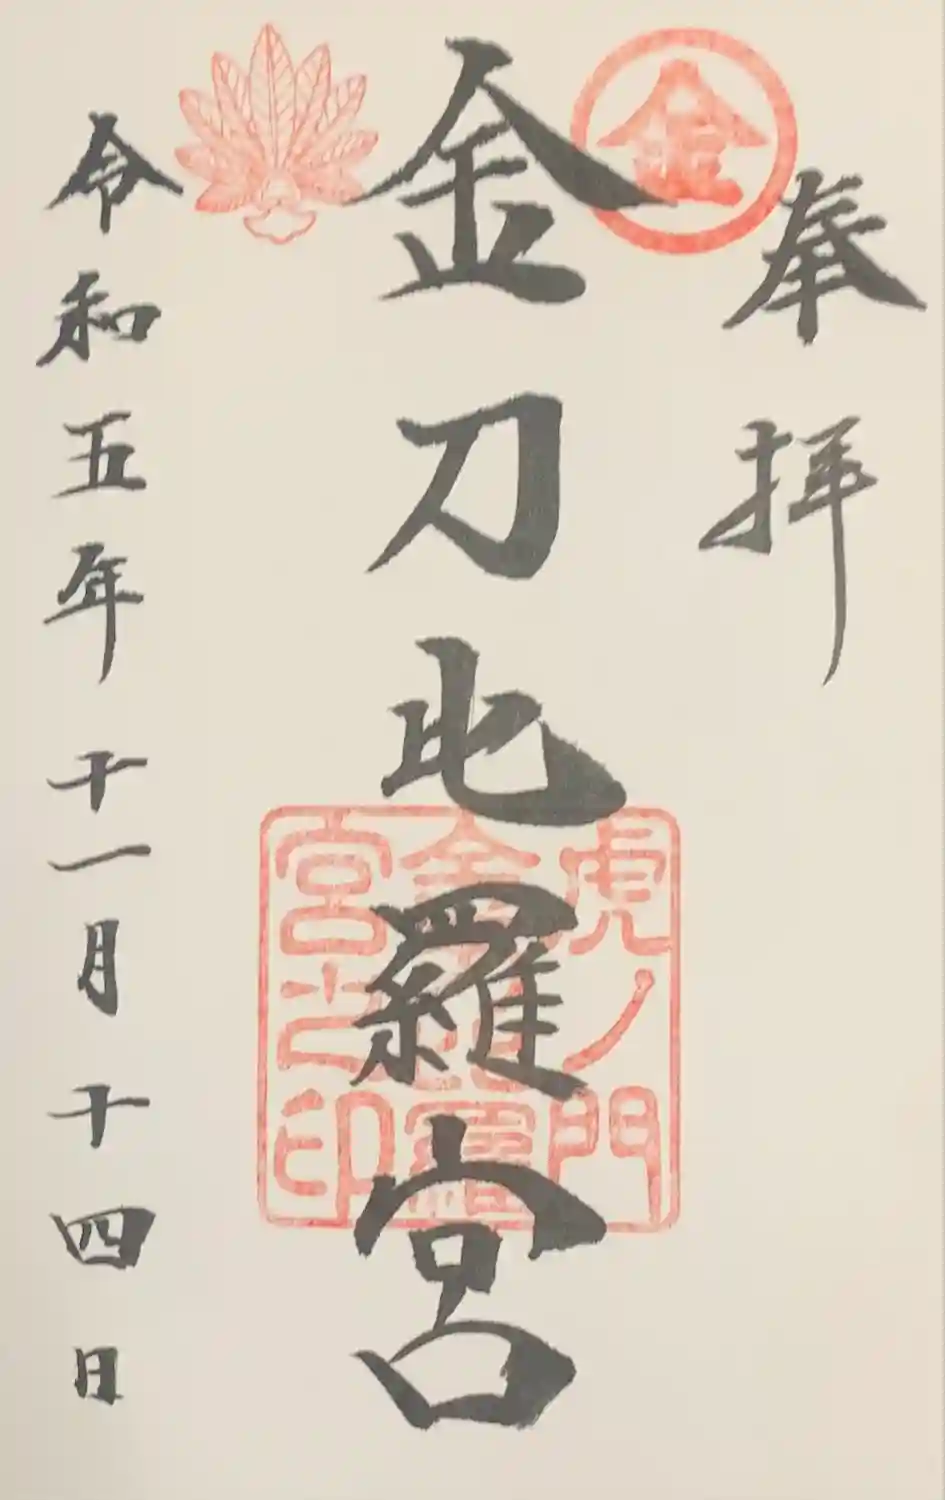 奉拝
金
金刀比羅宮
虎ノ門
金刀比羅
宮之印
令和五年十一月十四日